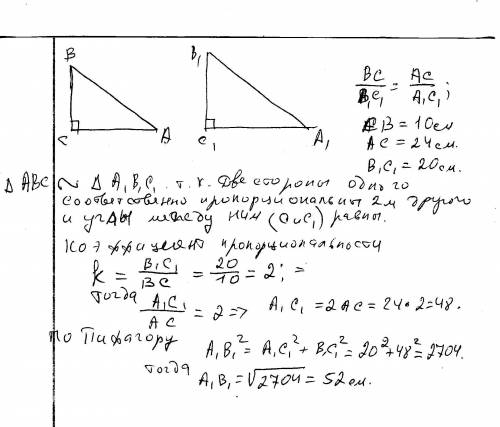 B
C
A
B₁
C₁
A₁
BC/B₁C₁ = AC/A₁C₁;
CB = 10см
AC = 24см.
B₁C₁ = 20см.
Δ ABC ~ Δ A₁B₁C₁ т.к. две стороны одного
соответственно пропорциональны 2м другого
и углы между ним (C и C₁) равны.
Коэффициент пропорциональности
k = B₁C₁/BC = 20/10 = 2; =
тогда A₁C₁/AC = 2 => A₁C₁ = 2AC = 24·2 = 48.
По Пифагору A₁B₁² = A₁C₁² + B₁C₁² = 20² + 48² = 2704.
тогда A₁B₁ = √2704 = 52см.